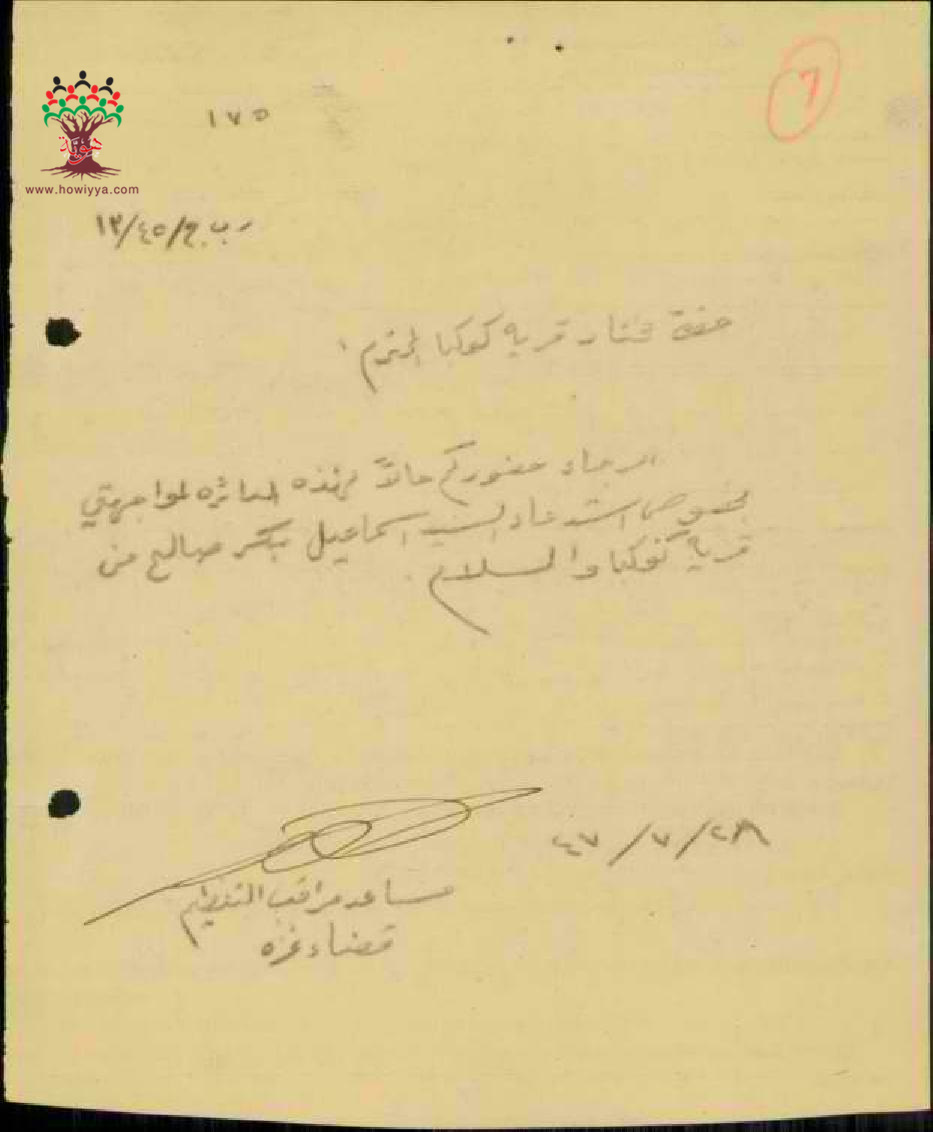 7
١٧٥
هوية
www.howiyya.com
ر ب ج/٤٥/١٢
حضرة مختار قرية كوكبا المحترم
الرجاء حضوركم حالاً لهذه الدائره لمواجهتي
بخصوص استدعاء السيد اسماعيل بكر صالح من
قرية كوكبا والسلام.
٢٨/٧/٤٧
مساعد مراقب التنظيم
قضاء غزه